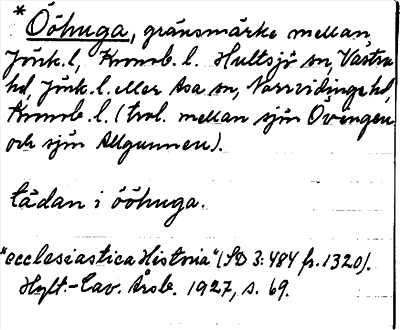 * Ööhuga, gränsmärke mellan
Jönk. l, Kronob. l. Hultsjö sn, Västra
hd, Jönk. l. eller Asa sn, Norrvidinge hd,
Kronob. l. (trol. mellan sjön Övingen
och sjön Allgunnen).
tädan i ööhuga.
"ecclesiastica Historia" (SD 3:484 fr. 1320).
Hylt.-Cav. Årsb. 1927, s. 69.